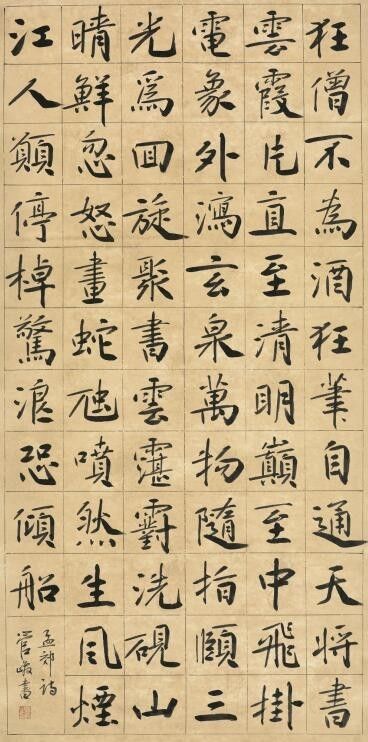 狂僧不為酒狂筆自通天將書
雲霞片直至清明巔至中飛掛
電象外瀉玄泉萬物隨指顧三
光爲囬旋聚書雲霮䨴洗硯山
晴鮮忽怒畫蛇虺噴然生風煙
江人願停棹驚浪恐傾船
孟郊詩
管峻書